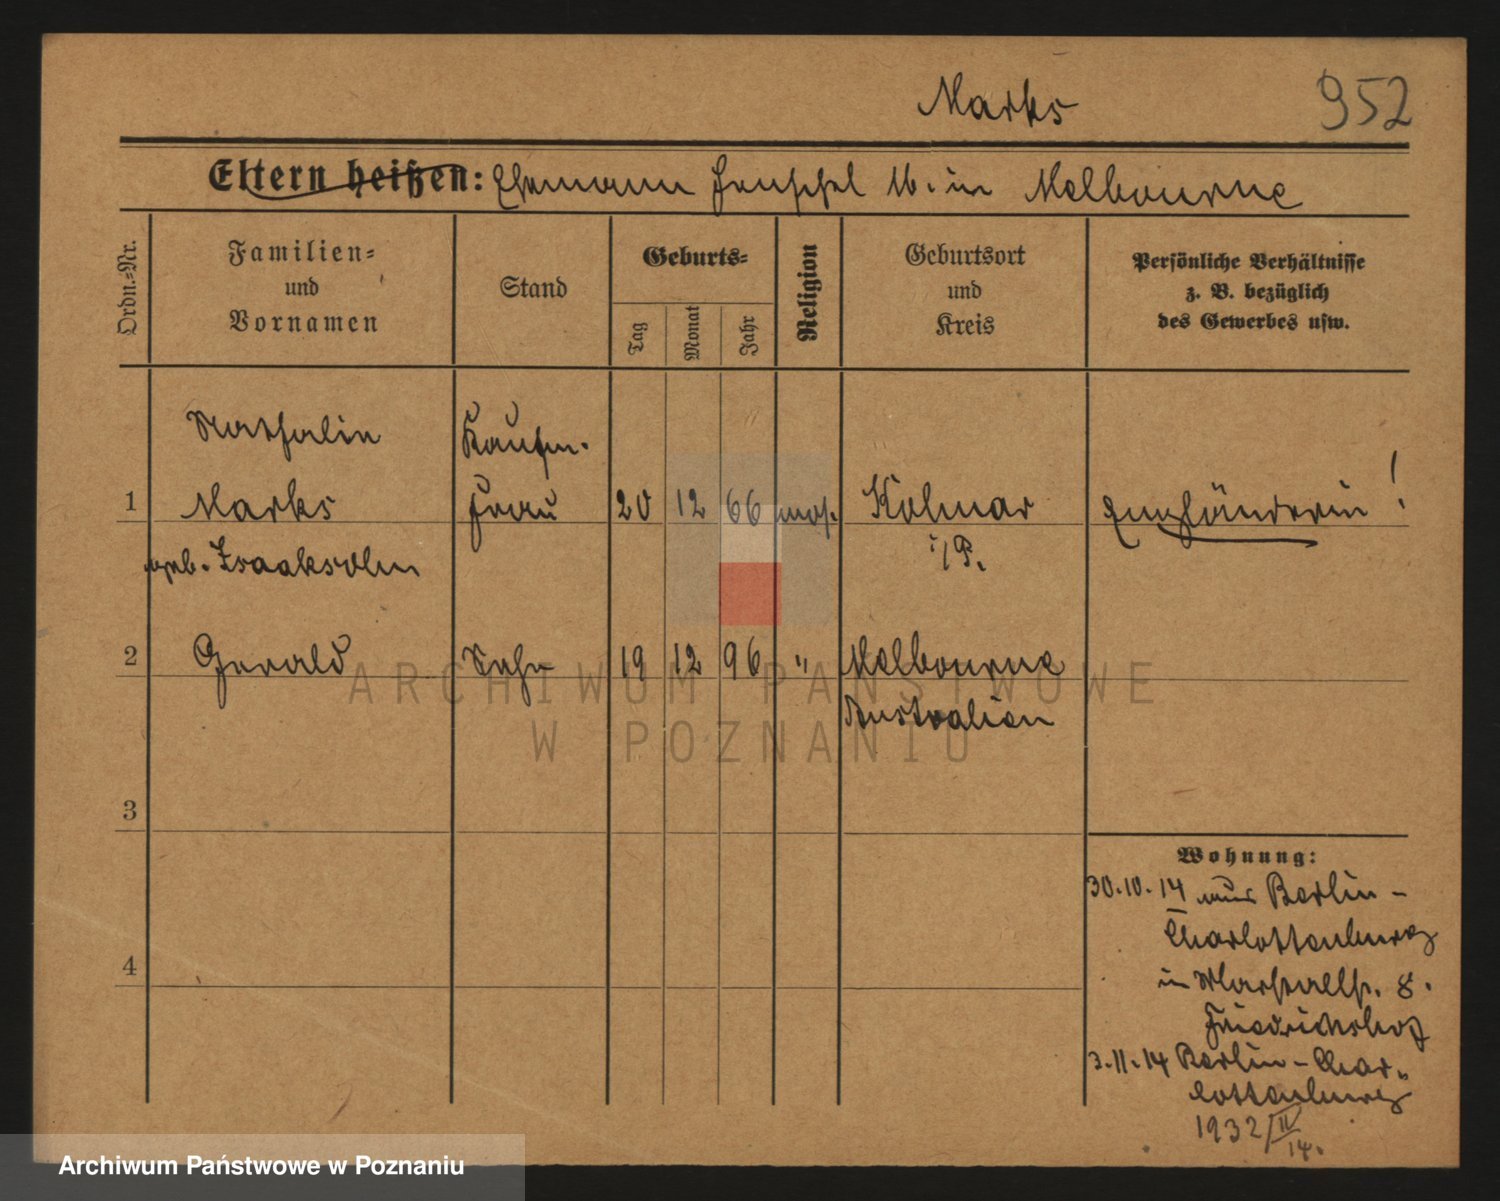 Marks
952
Eltern heißen: Ehemann M. in Melbourne
Ordn.=Nr.
Familien=
und
Vornamen
Stand
Geburts=
Tag
Monat
Jahr
Religion
Geburtsort
und
Kreis
Persönliche Verhältnisse
z. B. bezüglich
des Gewerbes usw.
Nathalin Kaufm.
1 Marks Frau 20 12 66 mos. Kolmar Engländerin!
geb. Isaaksohn i/P.
2 Gerald Sohn 19 12 96 " Melbourne
Australien
3
4
Wohnung:
30.10.14 aus Berlin-
Charlottenburg
in 8.
Friedrichshof
3.11.14 Berlin-Char„
lottenburg
1932/IV
14.
ARCHIWUM PAŃSTWOWE
W POZNANIU
Archiwum Państwowe w Poznaniu